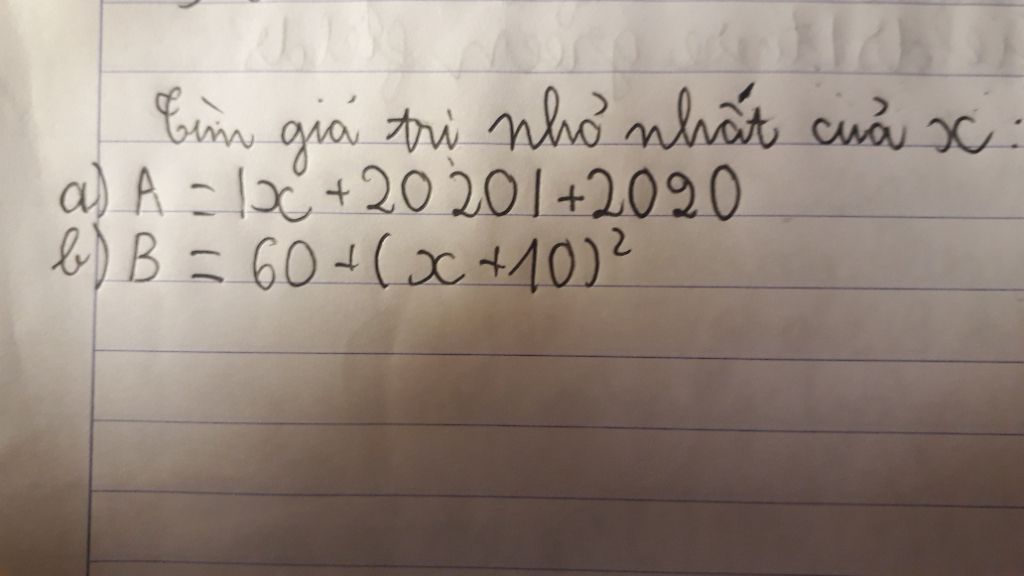 Tìm giá trị nhỏ nhất của x:
a) A = |x + 2020| + 2020
b) B = 60 + (x + 10)²